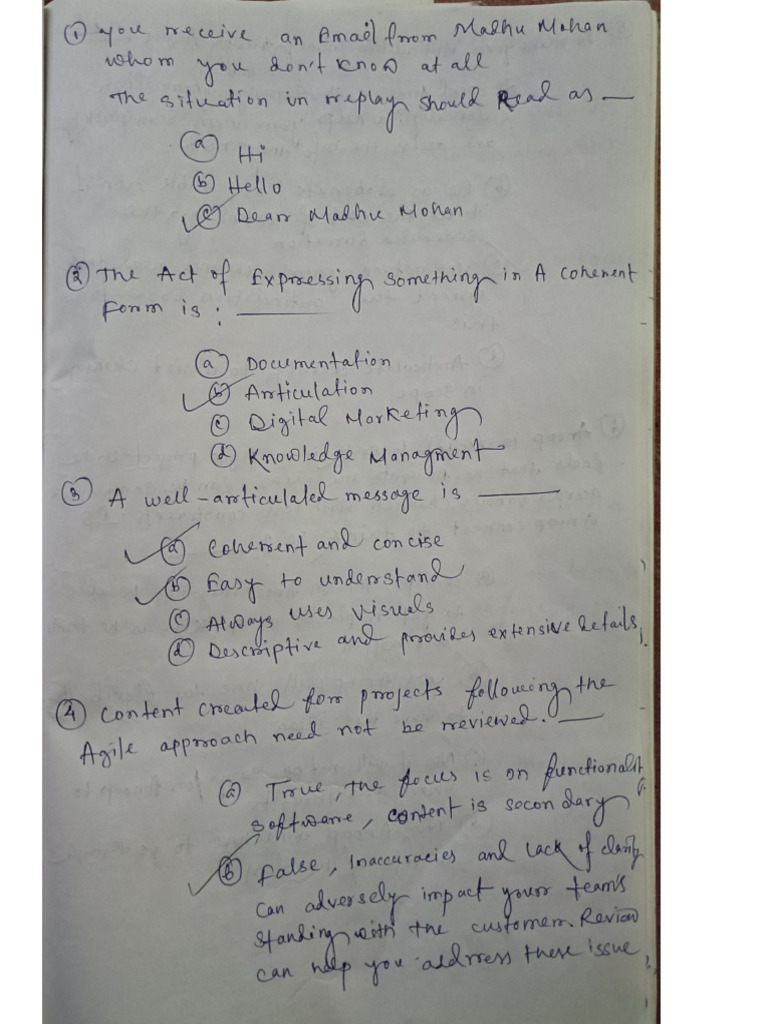 ① you receive an Email from Madhu Mohan
whom you don't know at all
The situation in rreplay should Read as —
ⓐ Hi
ⓑ Hello
ⓒ Dear Madhu Mohan
② The Act of Expressing something in A coherent
Form is : ———
ⓐ Documentation
ⓑ Articulation
ⓒ Digital Marketing
ⓓ Knowledge Managment
③ A well-articulated message is ———
ⓐ Coherent and concise
ⓑ Easy to understand
ⓒ Always uses visuals
ⓓ Descriptive and provides extensive details.
④ Content created for projects following the
Agile approach need not be reviewed. —
ⓐ True, the focus is on functionalit
software, content is secondary
ⓑ false, Inaccuracies and lack of clarity
can adversely impact your team's
standing with the customer. Review
can help you address these issue